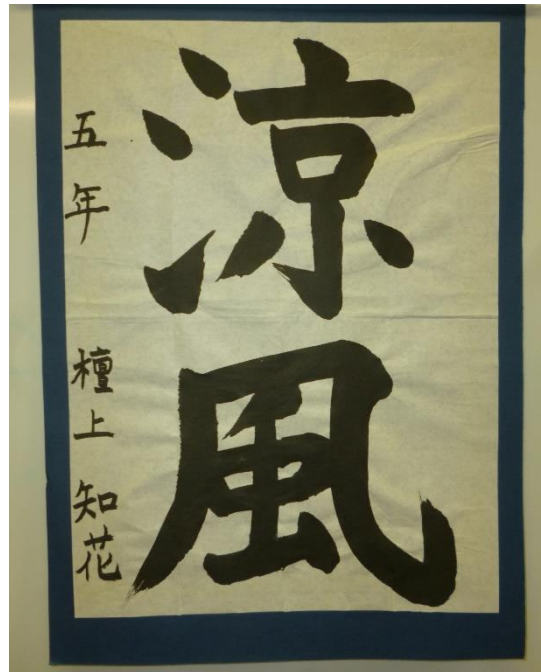 涼風
五年 檀上 知花